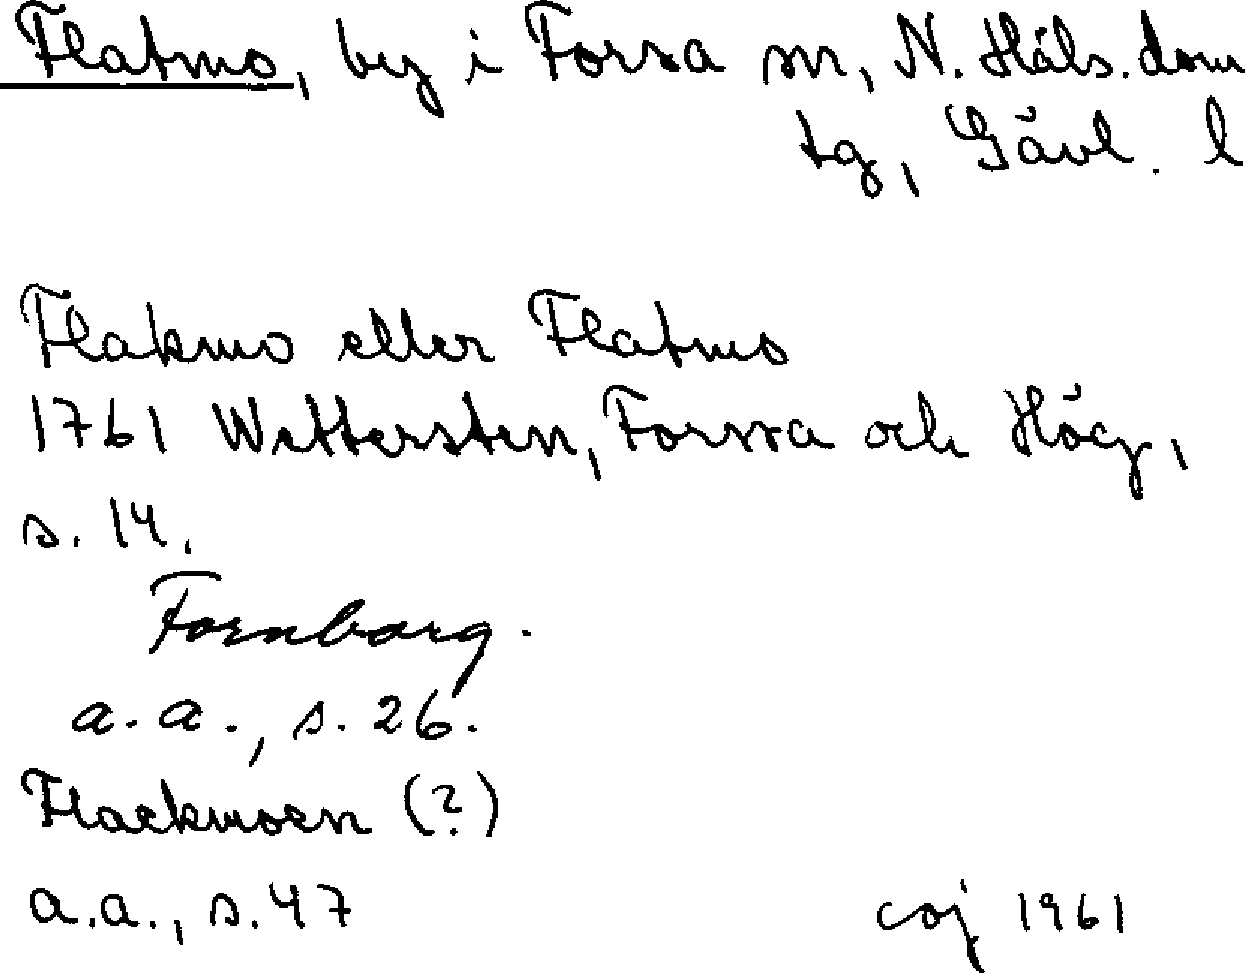 Flatmo, by i Forsa sn, N. Häls. dom
tg, Gävl. l
Flakmo eller Flatmo
1761 Wettersten, Forssa och Hög,
s. 14.
Fornborg.
a.a., s. 26.
Flackmoen (?)
a.a., s. 47
coj 1961